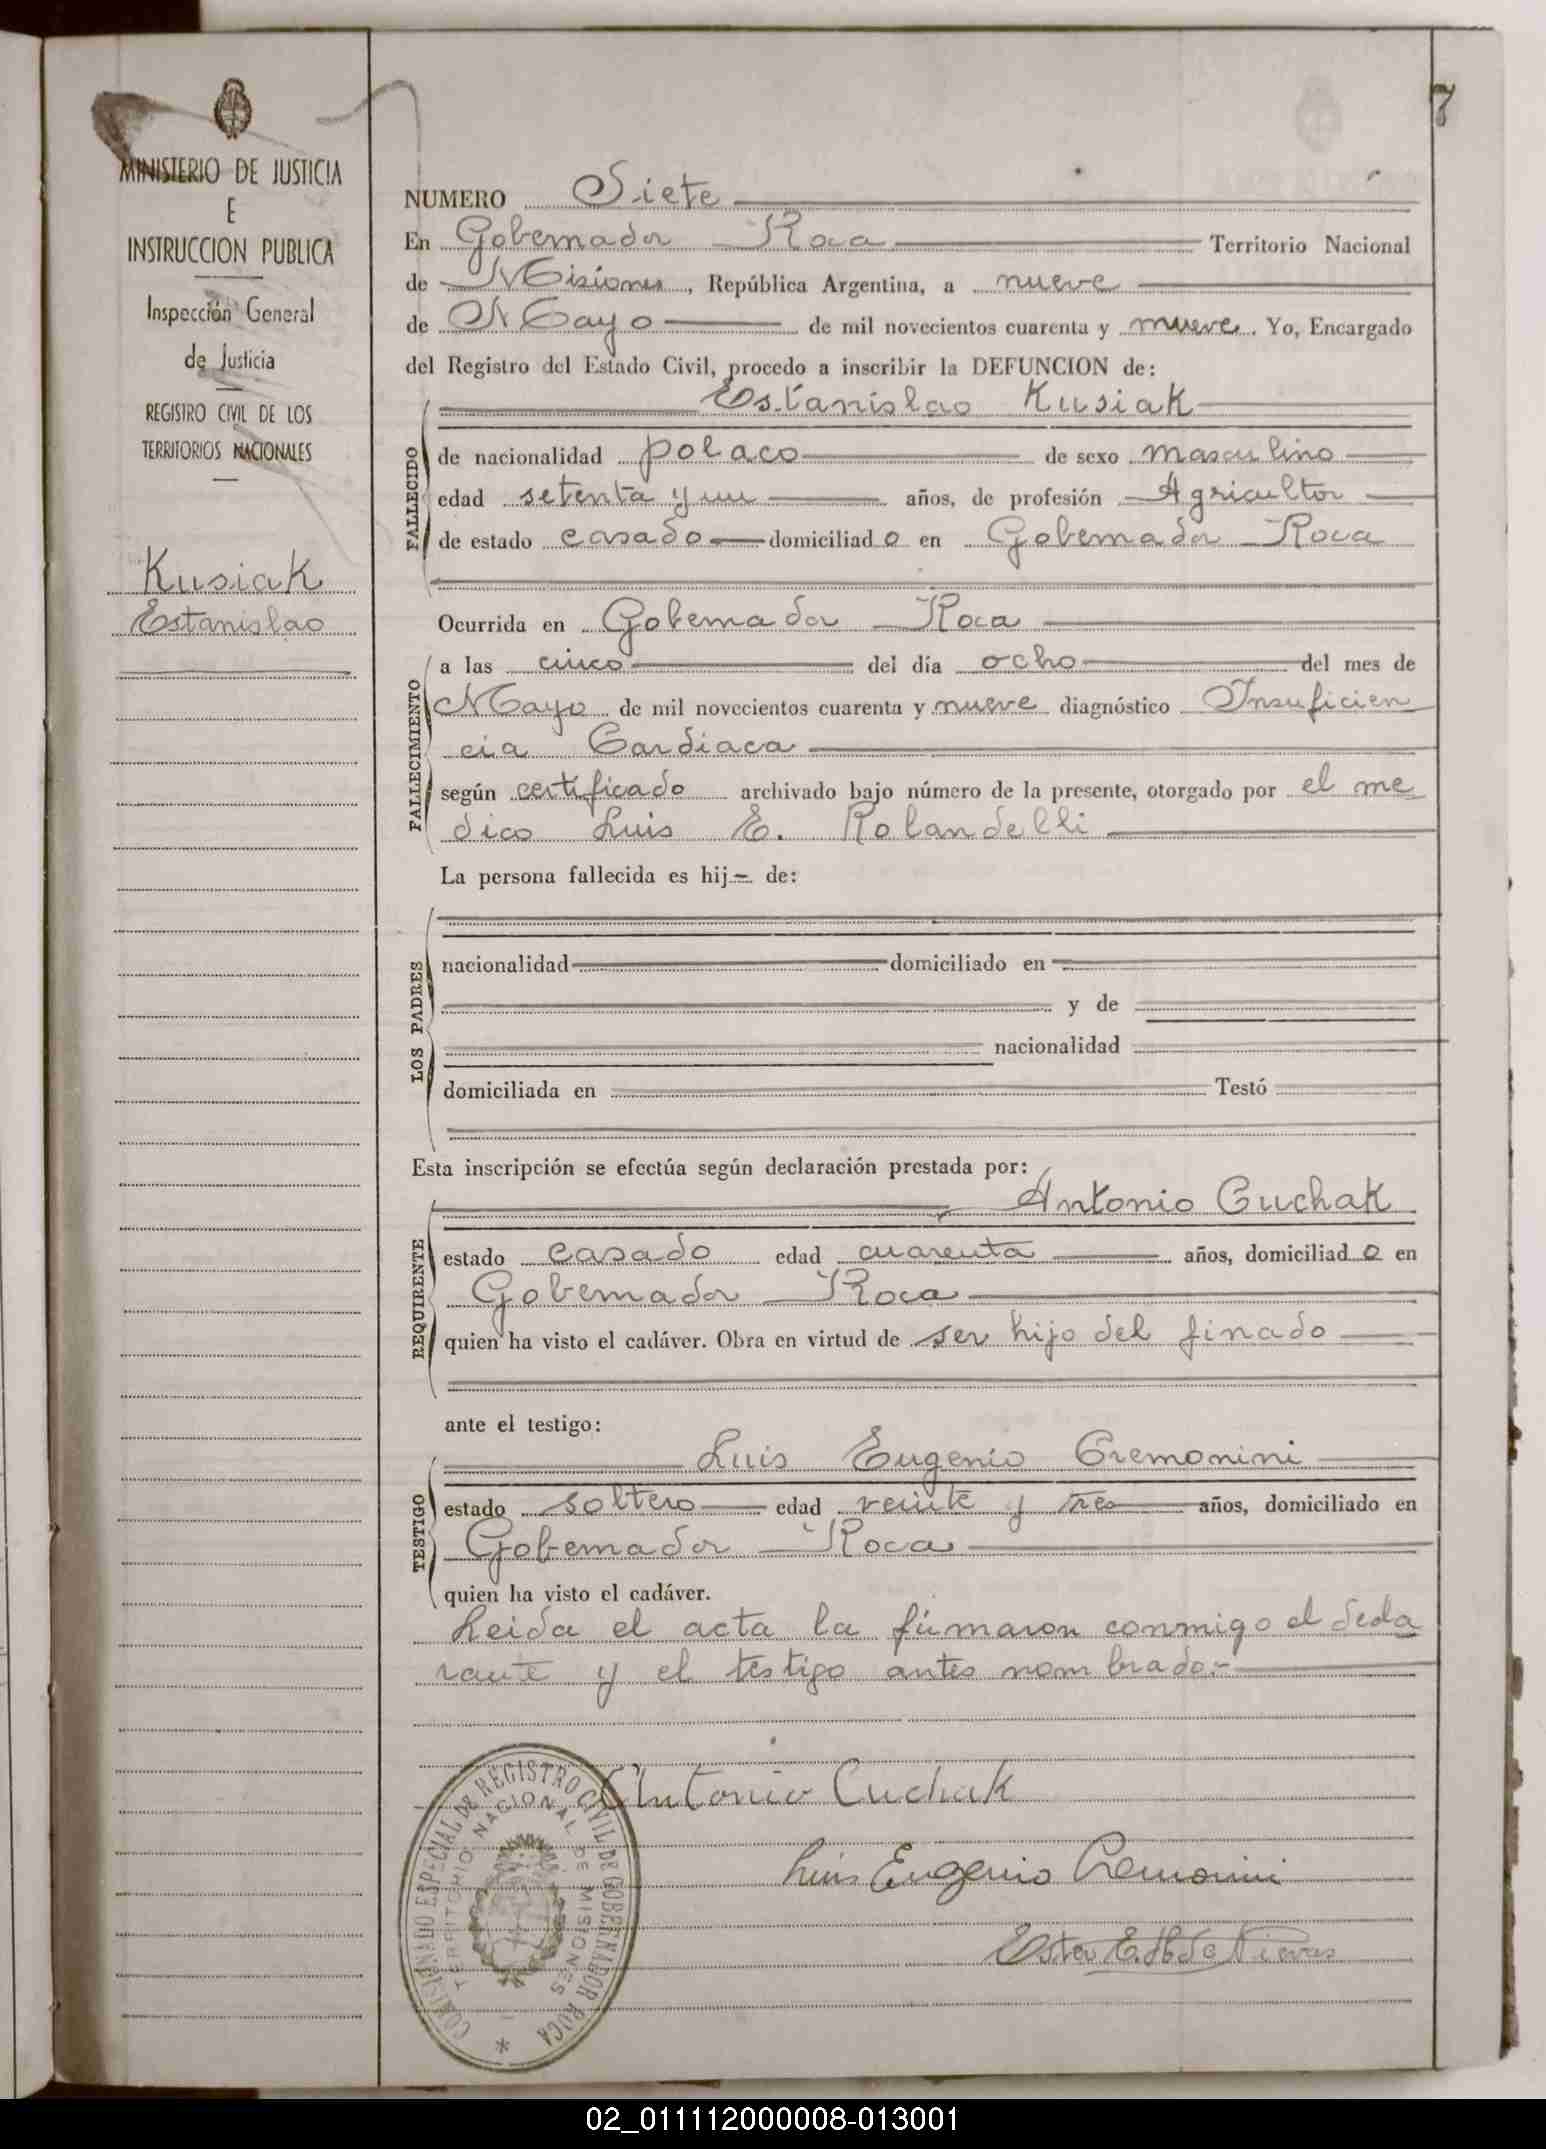 7
MINISTERIO DE JUSTICIA
E
INSTRUCCION PUBLICA
Inspección General
de Justicia
REGISTRO CIVIL DE LOS
TERRITORIOS NACIONALES
Kusiak
Estanislao
NUMERO Siete
En Gobernador Roca Territorio Nacional
de Misiones, República Argentina, a nueve
de Mayo de mil novecientos cuarenta y nueve. Yo, Encargado
del Registro del Estado Civil, procedo a inscribir la DEFUNCION de:
Estanislao Kusiak
FALLECIDO
de nacionalidad polaco de sexo masculino
edad setenta y un años, de profesión Agricultor
de estado casado domiciliado en Gobernador Roca
Ocurrida en Gobernador Roca
FALLECIMIENTO
a las cinco del día ocho del mes de
Mayo de mil novecientos cuarenta y nueve diagnóstico Insuficien
cia Cardiaca
según certificado archivado bajo número de la presente, otorgado por el me
dico Luis E. Rolandelli
La persona fallecida es hij- de:
LOS PADRES
nacionalidad domiciliado en
y de
nacionalidad
domiciliada en Testó
Esta inscripción se efectúa según declaración prestada por:
Antonio Cuchak
REQUIRENTE
estado casado edad cuarenta años, domiciliado en
Gobernador Roca
quien ha visto el cadáver. Obra en virtud de ser hijo del finado
ante el testigo:
Luis Eugenio Cremonini
TESTIGO
estado soltero edad veinte y tres años, domiciliado en
Gobernador Roca
quien ha visto el cadáver.
Leida el acta la firmaron conmigo el decla
rante y el testigo antes nombrado.-
Antonio Cuchak
Luis Eugenio Cremonini
Ester E. de Nievas
COMISIONADO ESPECIAL DE REGISTRO CIVIL DE GOBERNADOR ROCA
TERRITORIO NACIONAL DE MISIONES
02_011112000008-013001